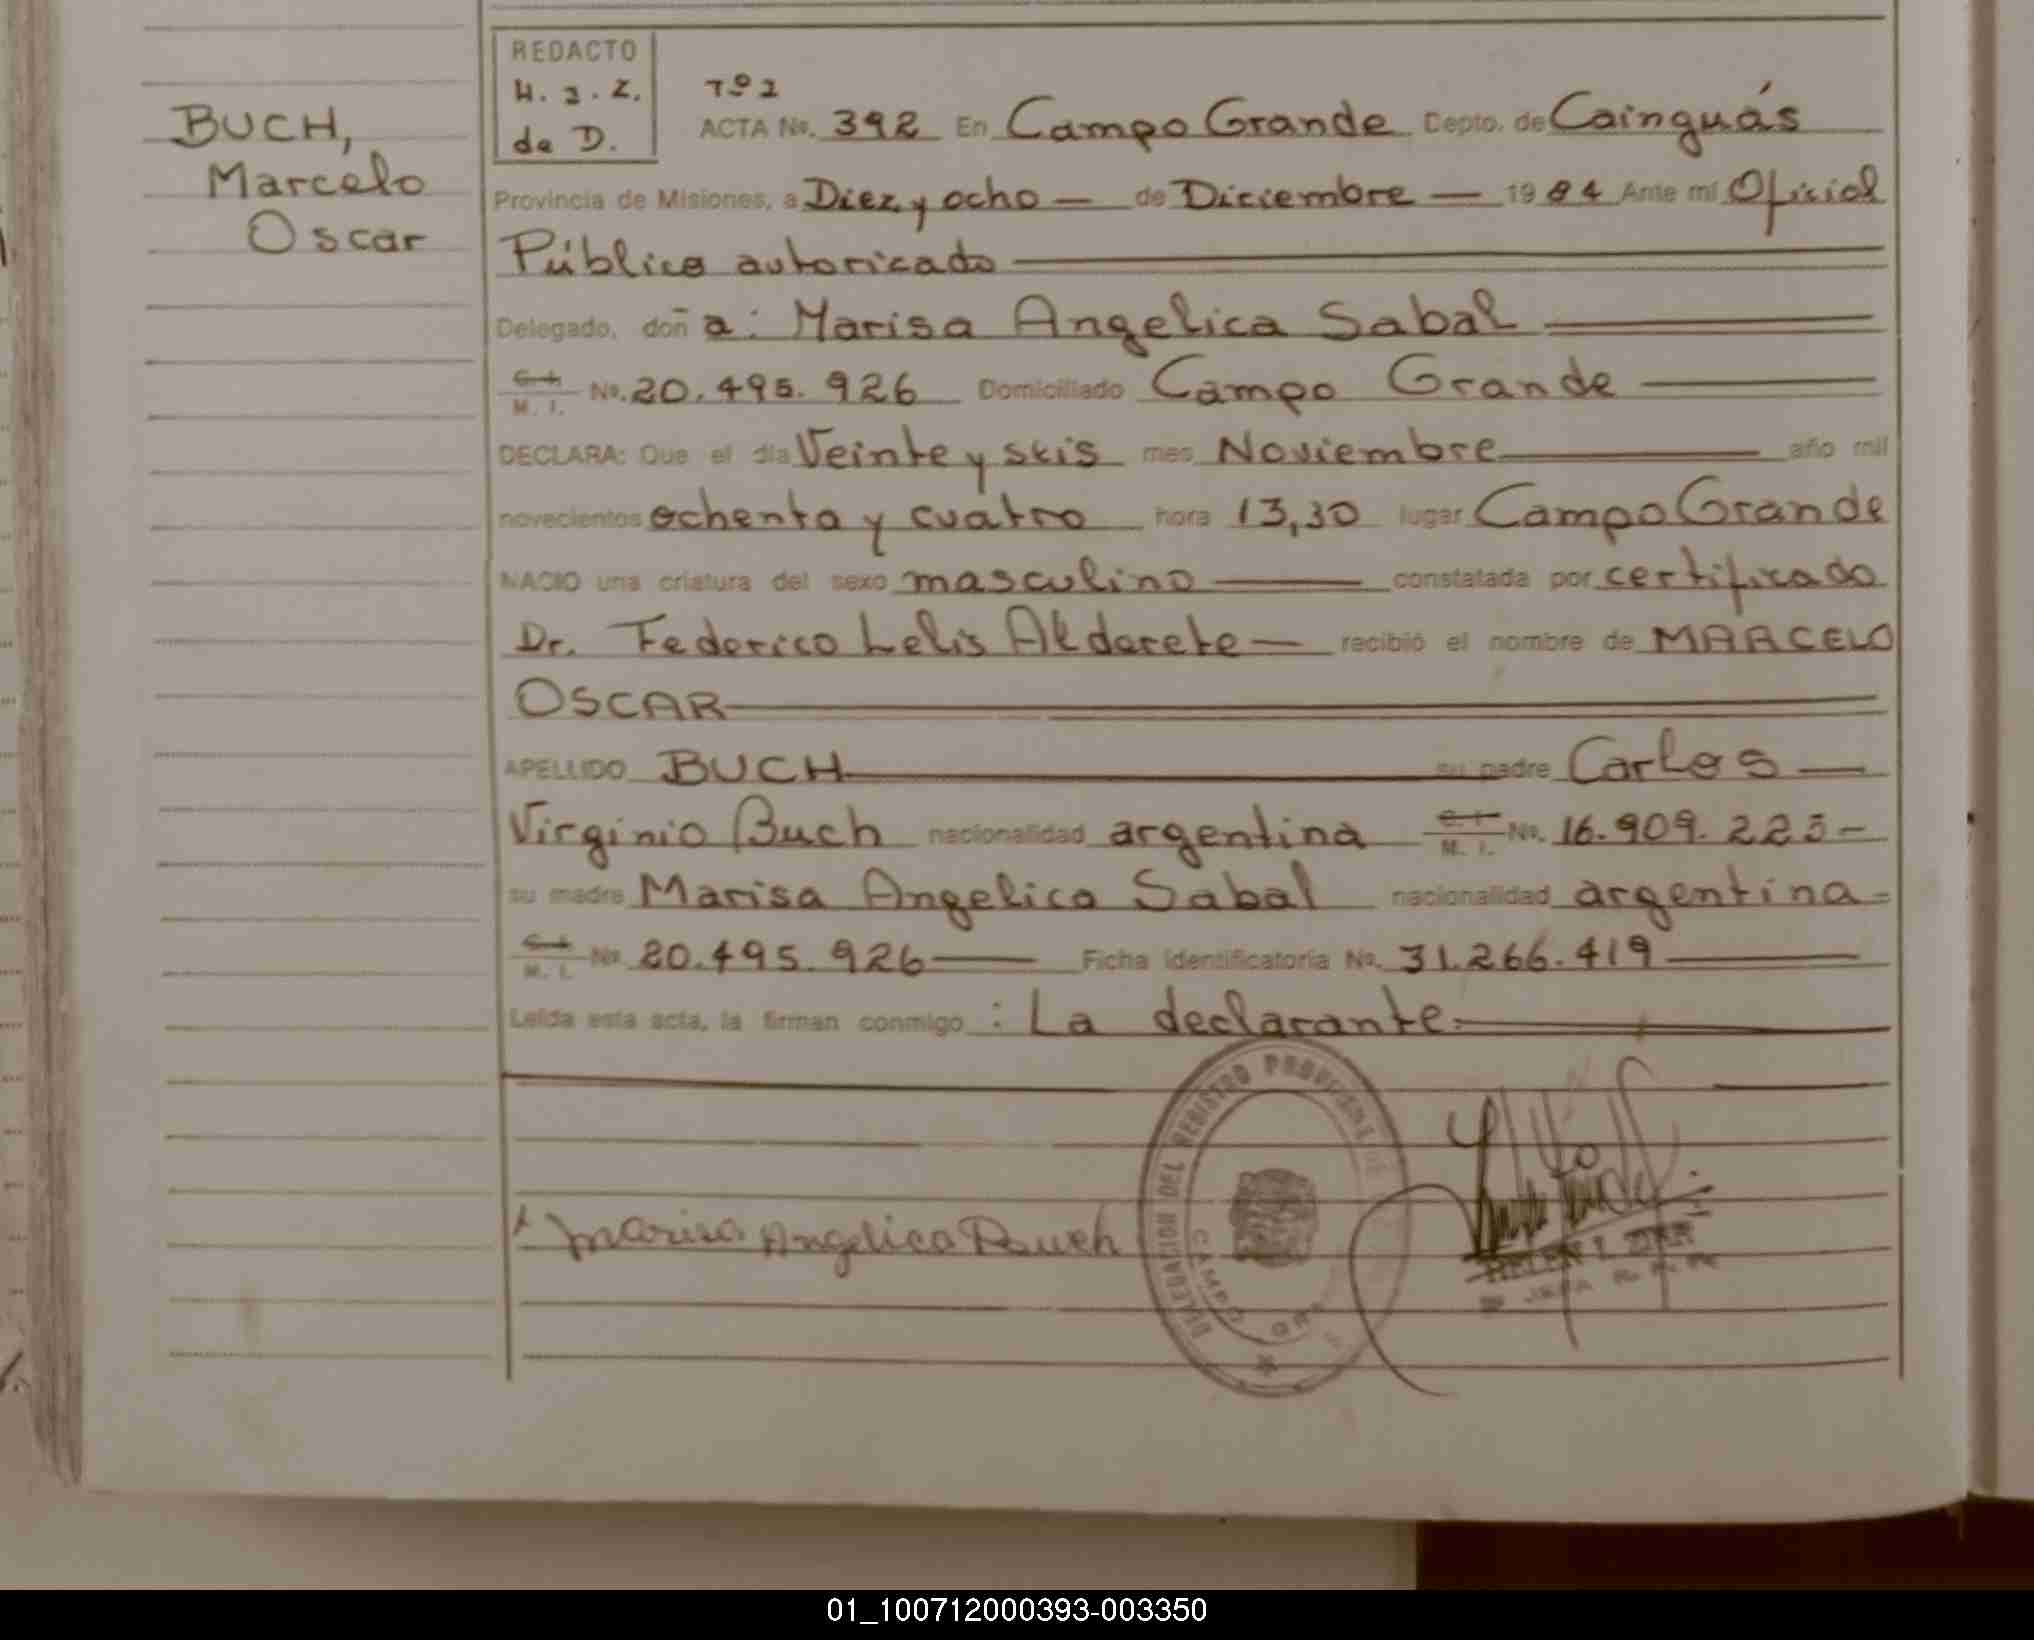 BUCH,
Marcelo
Oscar
REDACTO
H. J. Z.
de D.
Tº 2
ACTA No. 392 En Campo Grande Depto. de Cainguás
Provincia de Misiones, a Diez y ocho — de Diciembre — 1984 Ante mí Oficial
Público autorizado
Delegado, doña: Marisa Angelica Sabal
C. I. M. I. No. 20.495.926 Domiciliado Campo Grande
DECLARA: Que el día Veinte y seis mes Noviembre año mil
novecientos ochenta y cuatro hora 13,30 lugar Campo Grande
NACIO una criatura del sexo masculino constatada por certificado
Dr. Federico Lelis Alderete — recibió el nombre de MARCELO
OSCAR
APELLIDO BUCH su padre Carlos —
Virginio Buch nacionalidad argentina C. I. M. I. No. 16.909.225 —
su madre Marisa Angelica Sabal nacionalidad argentina =
C. I. M. I. No. 20.495.926 — Ficha Identificatoria No. 31.266.419
Leída esta acta, la firman conmigo : La declarante.
DELEGACION DEL REGISTRO PROVINCIAL DE
CAMPO GRANDE
Marisa Angelica Buch
01_100712000393-003350